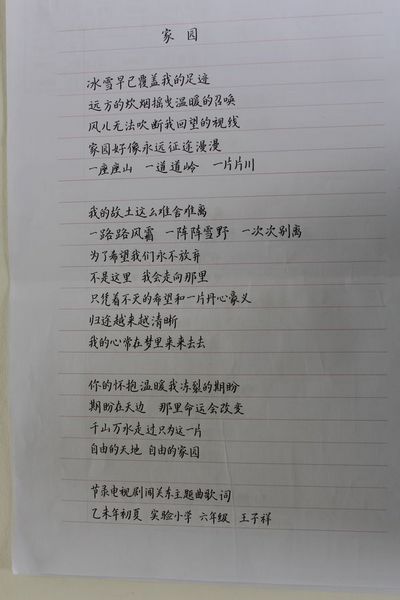 家园
冰雪早已覆盖我的足迹
远方的炊烟摇曳温暖的召唤
风儿无法吹断我回望的视线
家园好像永远征途漫漫
一座座山 一道道岭 一片片川
我的故土这么难舍难离
一路路风霜 一阵阵雪野 一次次别离
为了希望我们永不放弃
不是这里 我会走向那里
只凭着不灭的希望和一片丹心豪义
归途越来越清晰
我的心常在梦里来来去去
你的怀抱温暖我冻裂的期盼
期盼在天边 那里命运会改变
千山万水走过只为这一片
自由的天地 自由的家园
节录电视剧闯关东主题曲歌词
乙未年初夏 实验小学 六年级 王子祥